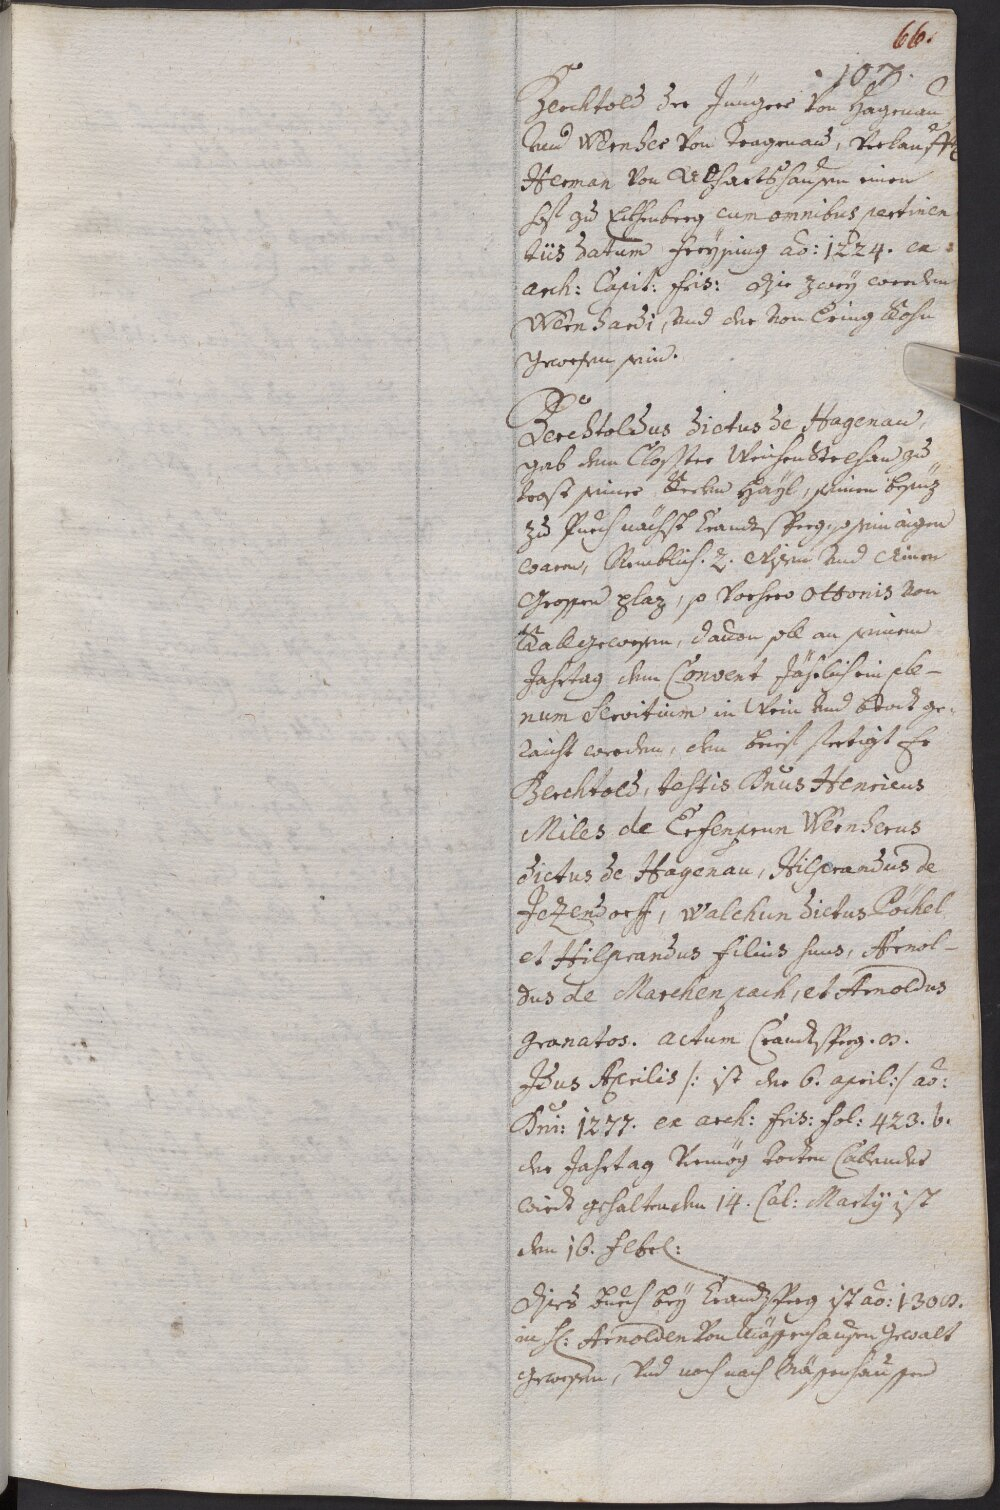 66.
107.
Berchtold der Jünger von Hagenau
und Wernher von Hagenau, verkaufft
Herman von Adhartshausen einen
hof zu Eckhenberg cum omnibus pertinen
tiis datum freysing ao: 1224. ex
arch: Capit: fris: die zwey werden
Wernhardi, und der von Cring Sohn
gewesen sein.
Berchtoldus dictus de Hagenau,
gab dem Closter Weihenstephan zu
trost seiner Seelen Hayl, seinen besiz
zu Puech nächst Crandsperg, so sein aigen
waren, Nemblich. 2. und einen
grossen plaz, so vorhero Ottonis von
gewesen, davon soll an seinem
Jahrtag dem Convent Jährlich ein ple-
num Servitium in Wein und brodt ge-
raicht werden, den brief fertigt Er
Berchtold, testis Dnus Henricus
Miles de Ersenprun Wernherus
dictus de Hagenau, Hilprandus de
Jezendorff, Walchun dictus Pöchel
et Hilprandus filius suus, Arnol-
dus de Marchenpach, et Arnoldus
granatos. actum Crandsperg. 8.
Idus Aprilis /: ist der 6. april :/ ao:
Dni: 1277. ex arch: fris: fol: 423. b.
der Jahrtag vermög Calender
wirdt gehalten den 14. Cal: Martij ist
den 16. febr:
dises buech bey Crandsperg ist ao: 1308.
in H: Arnolden von Mässenhausen Gewalt
gewesen, und noch nach Mässenhausen